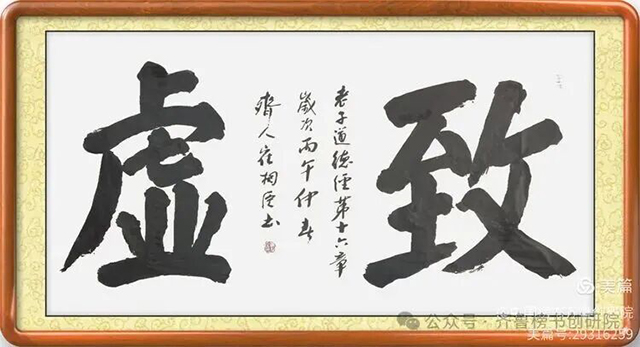 致
老子道德经第十六章
歲次丙午仲春
齊人崔相臣书
虚
美篇
公众号 · 齐鲁榜书创研院
美篇号:29316259